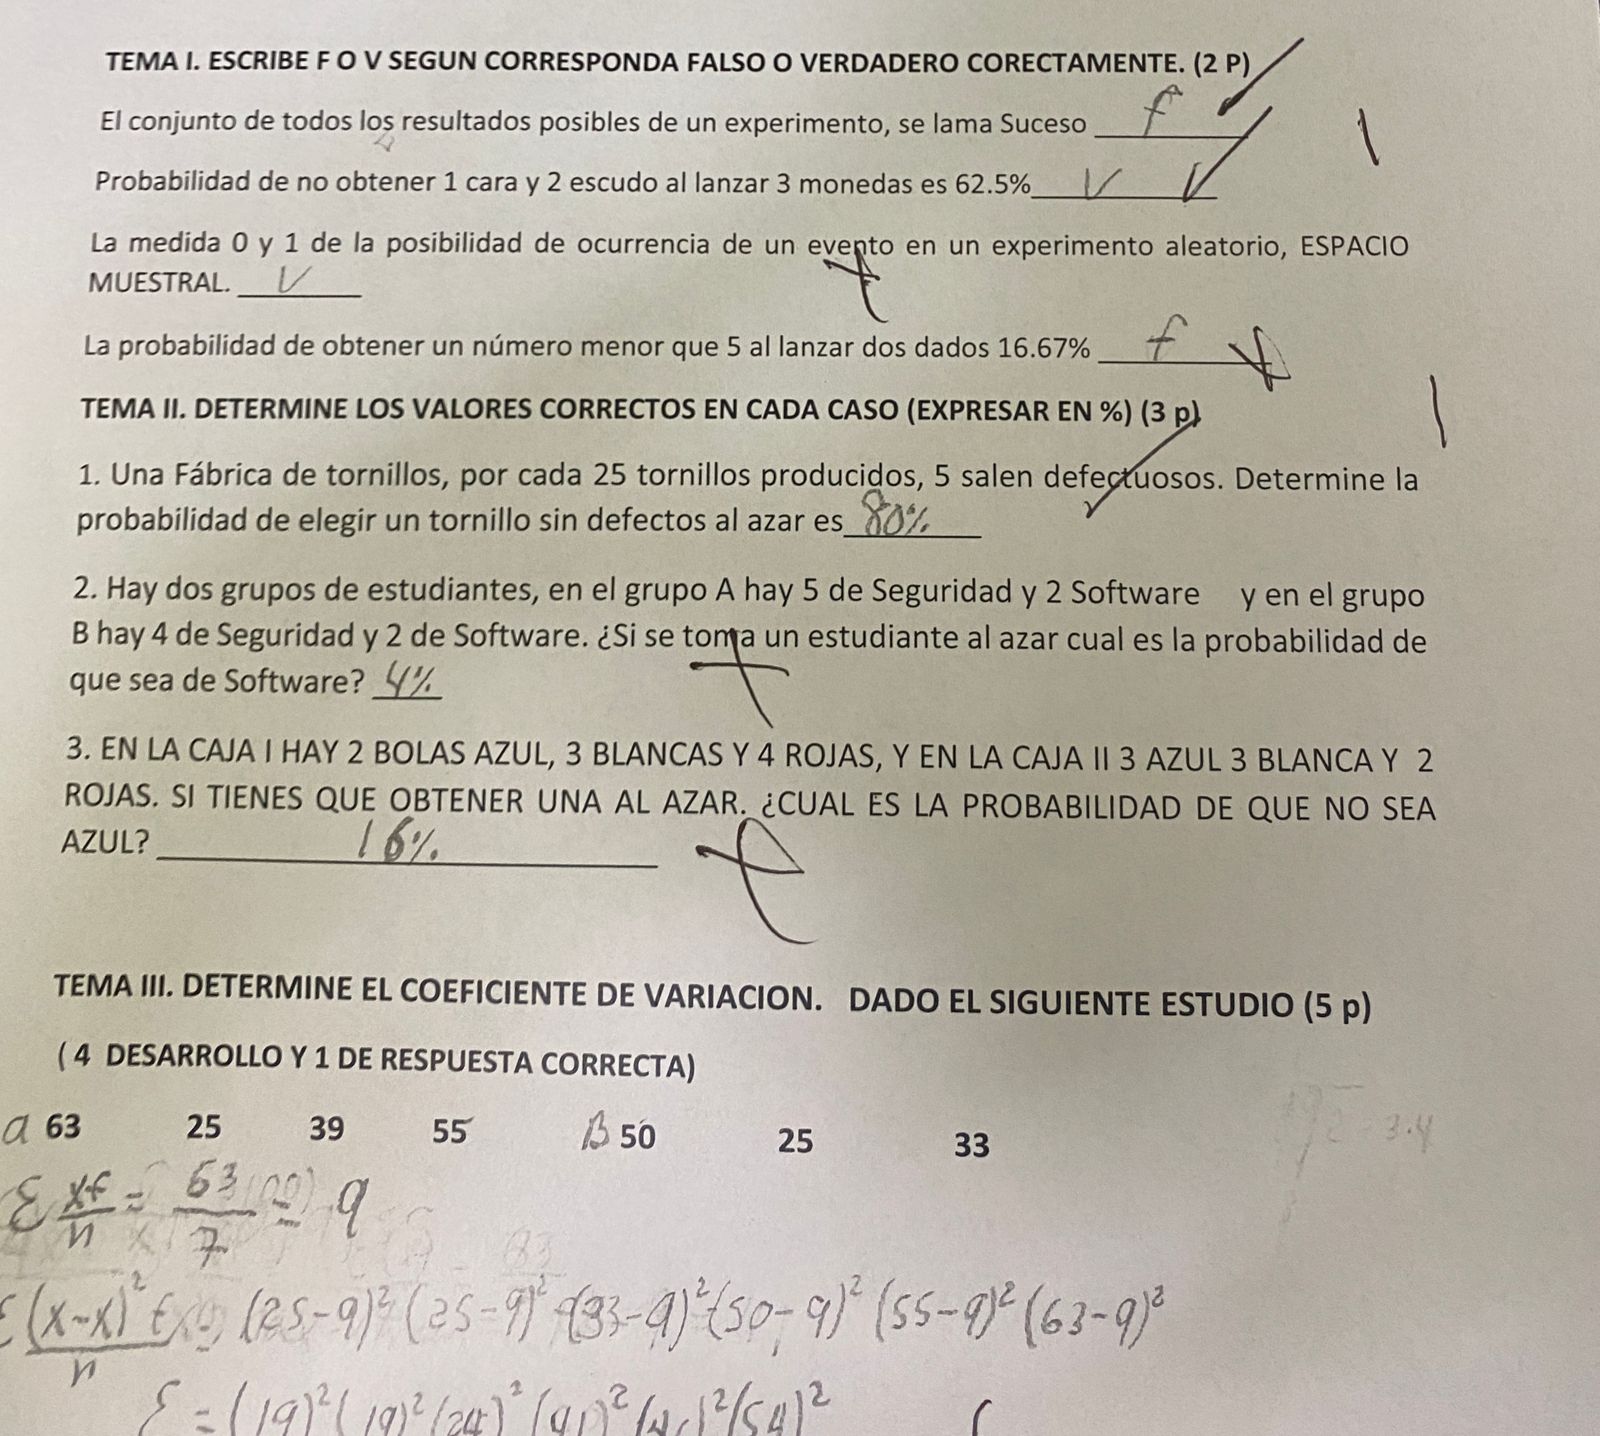 TEMA I. ESCRIBE F O V SEGUN CORRESPONDA FALSO O VERDADERO CORECTAMENTE. (2 P)
El conjunto de todos los resultados posibles de un experimento, se lama Suceso f
Probabilidad de no obtener 1 cara y 2 escudo al lanzar 3 monedas es 62.5% V
La medida 0 y 1 de la posibilidad de ocurrencia de un evento en un experimento aleatorio, ESPACIO
MUESTRAL. V
La probabilidad de obtener un número menor que 5 al lanzar dos dados 16.67% f
TEMA II. DETERMINE LOS VALORES CORRECTOS EN CADA CASO (EXPRESAR EN %) (3 p)
1. Una Fábrica de tornillos, por cada 25 tornillos producidos, 5 salen defectuosos. Determine la
probabilidad de elegir un tornillo sin defectos al azar es 80%
2. Hay dos grupos de estudiantes, en el grupo A hay 5 de Seguridad y 2 Software y en el grupo
B hay 4 de Seguridad y 2 de Software. ¿Si se toma un estudiante al azar cual es la probabilidad de
que sea de Software? 4%
3. EN LA CAJA I HAY 2 BOLAS AZUL, 3 BLANCAS Y 4 ROJAS, Y EN LA CAJA II 3 AZUL 3 BLANCA Y 2
ROJAS. SI TIENES QUE OBTENER UNA AL AZAR. ¿CUAL ES LA PROBABILIDAD DE QUE NO SEA
AZUL? 16%
TEMA III. DETERMINE EL COEFICIENTE DE VARIACION. DADO EL SIGUIENTE ESTUDIO (5 p)
( 4 DESARROLLO Y 1 DE RESPUESTA CORRECTA)
a 63 25 39 55 B 50 25 33
Σ xf/n = 63/7 = 9
Σ (x-x)² f/n = (25-9)² (25-9)² (33-9)² (50-9)² (55-9)² (63-9)²
Σ = (19)² (19)² (24)² (41)² ( )² (54)²